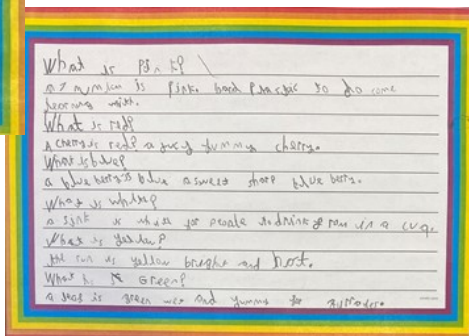 What is Pink?
is pink. hard plastic to do some
learning with.
What is red?
A cherry is red? a juicy yummy cherry.
What is blue?
a blue berry is blue a sweet blue berry.
What is white?
a sink is white for people to drink from in a cup.
What is yellow?
the sun is yellow bright and hot.
What is Green?
a is green and yummy for